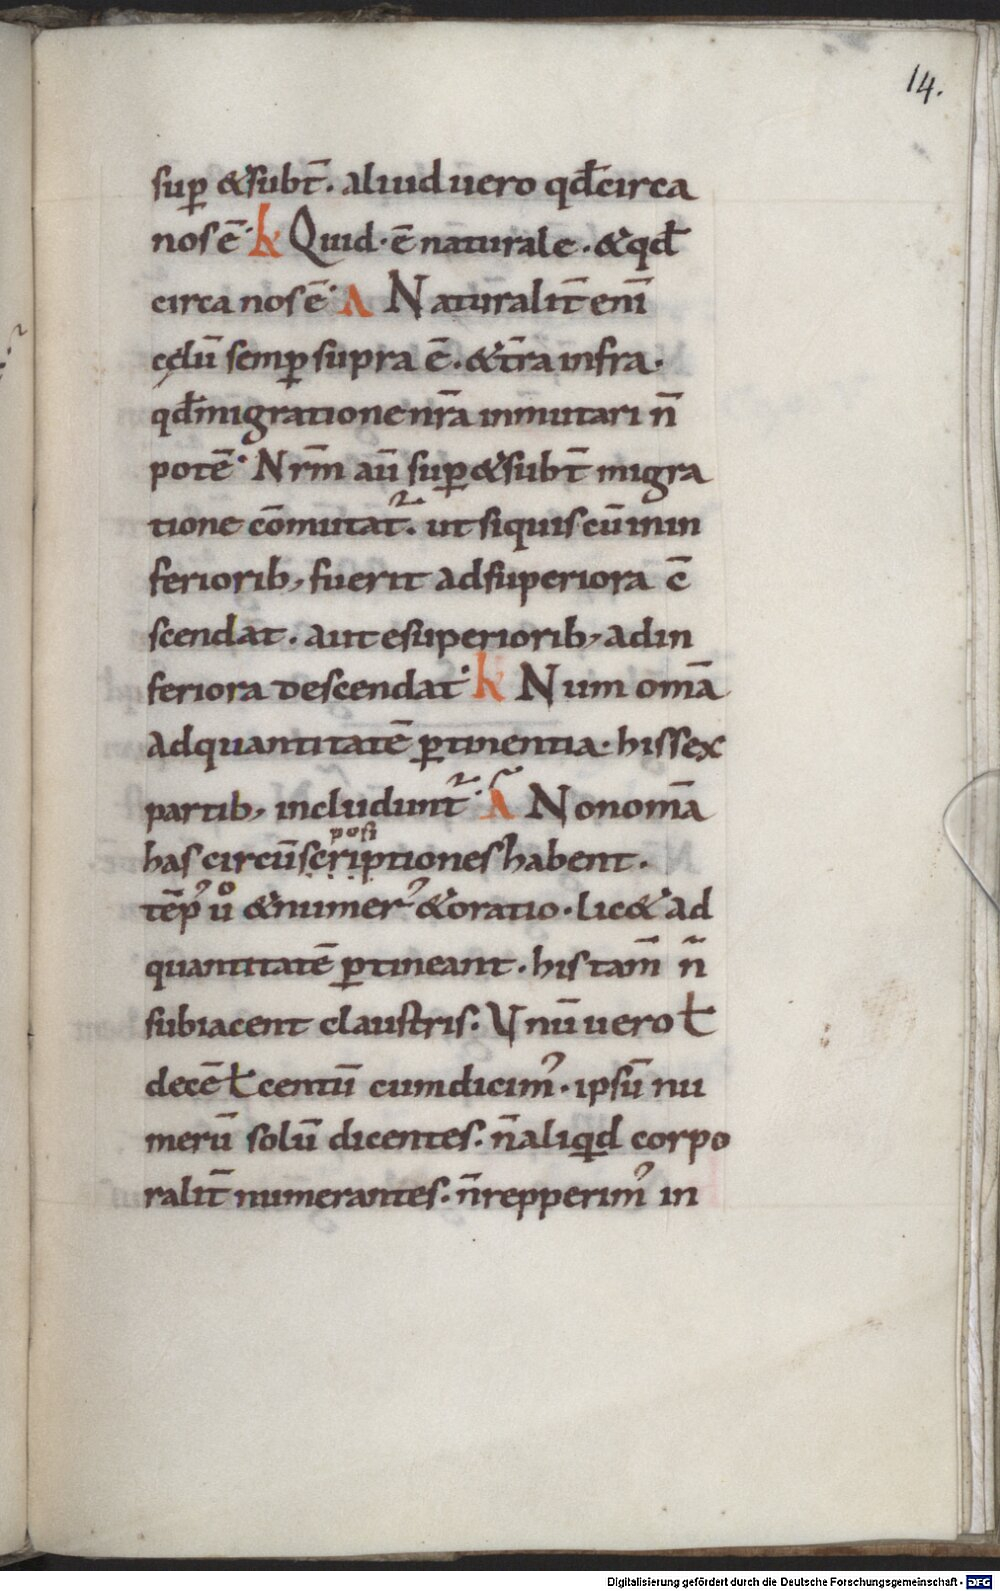 14.
sup̱ &subt̄. aliud uero qd̄ circa
nos ē. k Quid. ē naturale. & qd̄
circa nos ē. Λ Naturalit̄ eni̅
cęlū semp̱ supra ē. & t̄ra infra.
qd̄ migratione nr̄a inmutari n̄
potē. Nrm̄ aū sup̱ & subt̄ migra
tione cōmutat̄. ut siquis cū in in
feriorib, fuerit ad superiora c̄
scendat. aut e superiorib, ad in
feriora descendat. k Num om̄a
ad quantitatē p̱tinentia. his sex
partib, includunt̄. Λ Non om̄a
posi
has circūscriptiones habent.
tēp̓ uͦ & numer̓ & oratio. lic& ad
quantitatē p̱tineant. his tam̄ n̄
subiacent claustris. Vnū uero ł
decē ł centū cum dicim̓. ipsū nu
merū solū dicentes. n̄ aliqid corpo
ralit̄ numerantes. n̄ repperim̓ in
Digitalisierung gefördert durch die Deutsche Forschungsgemeinschaft - DFG